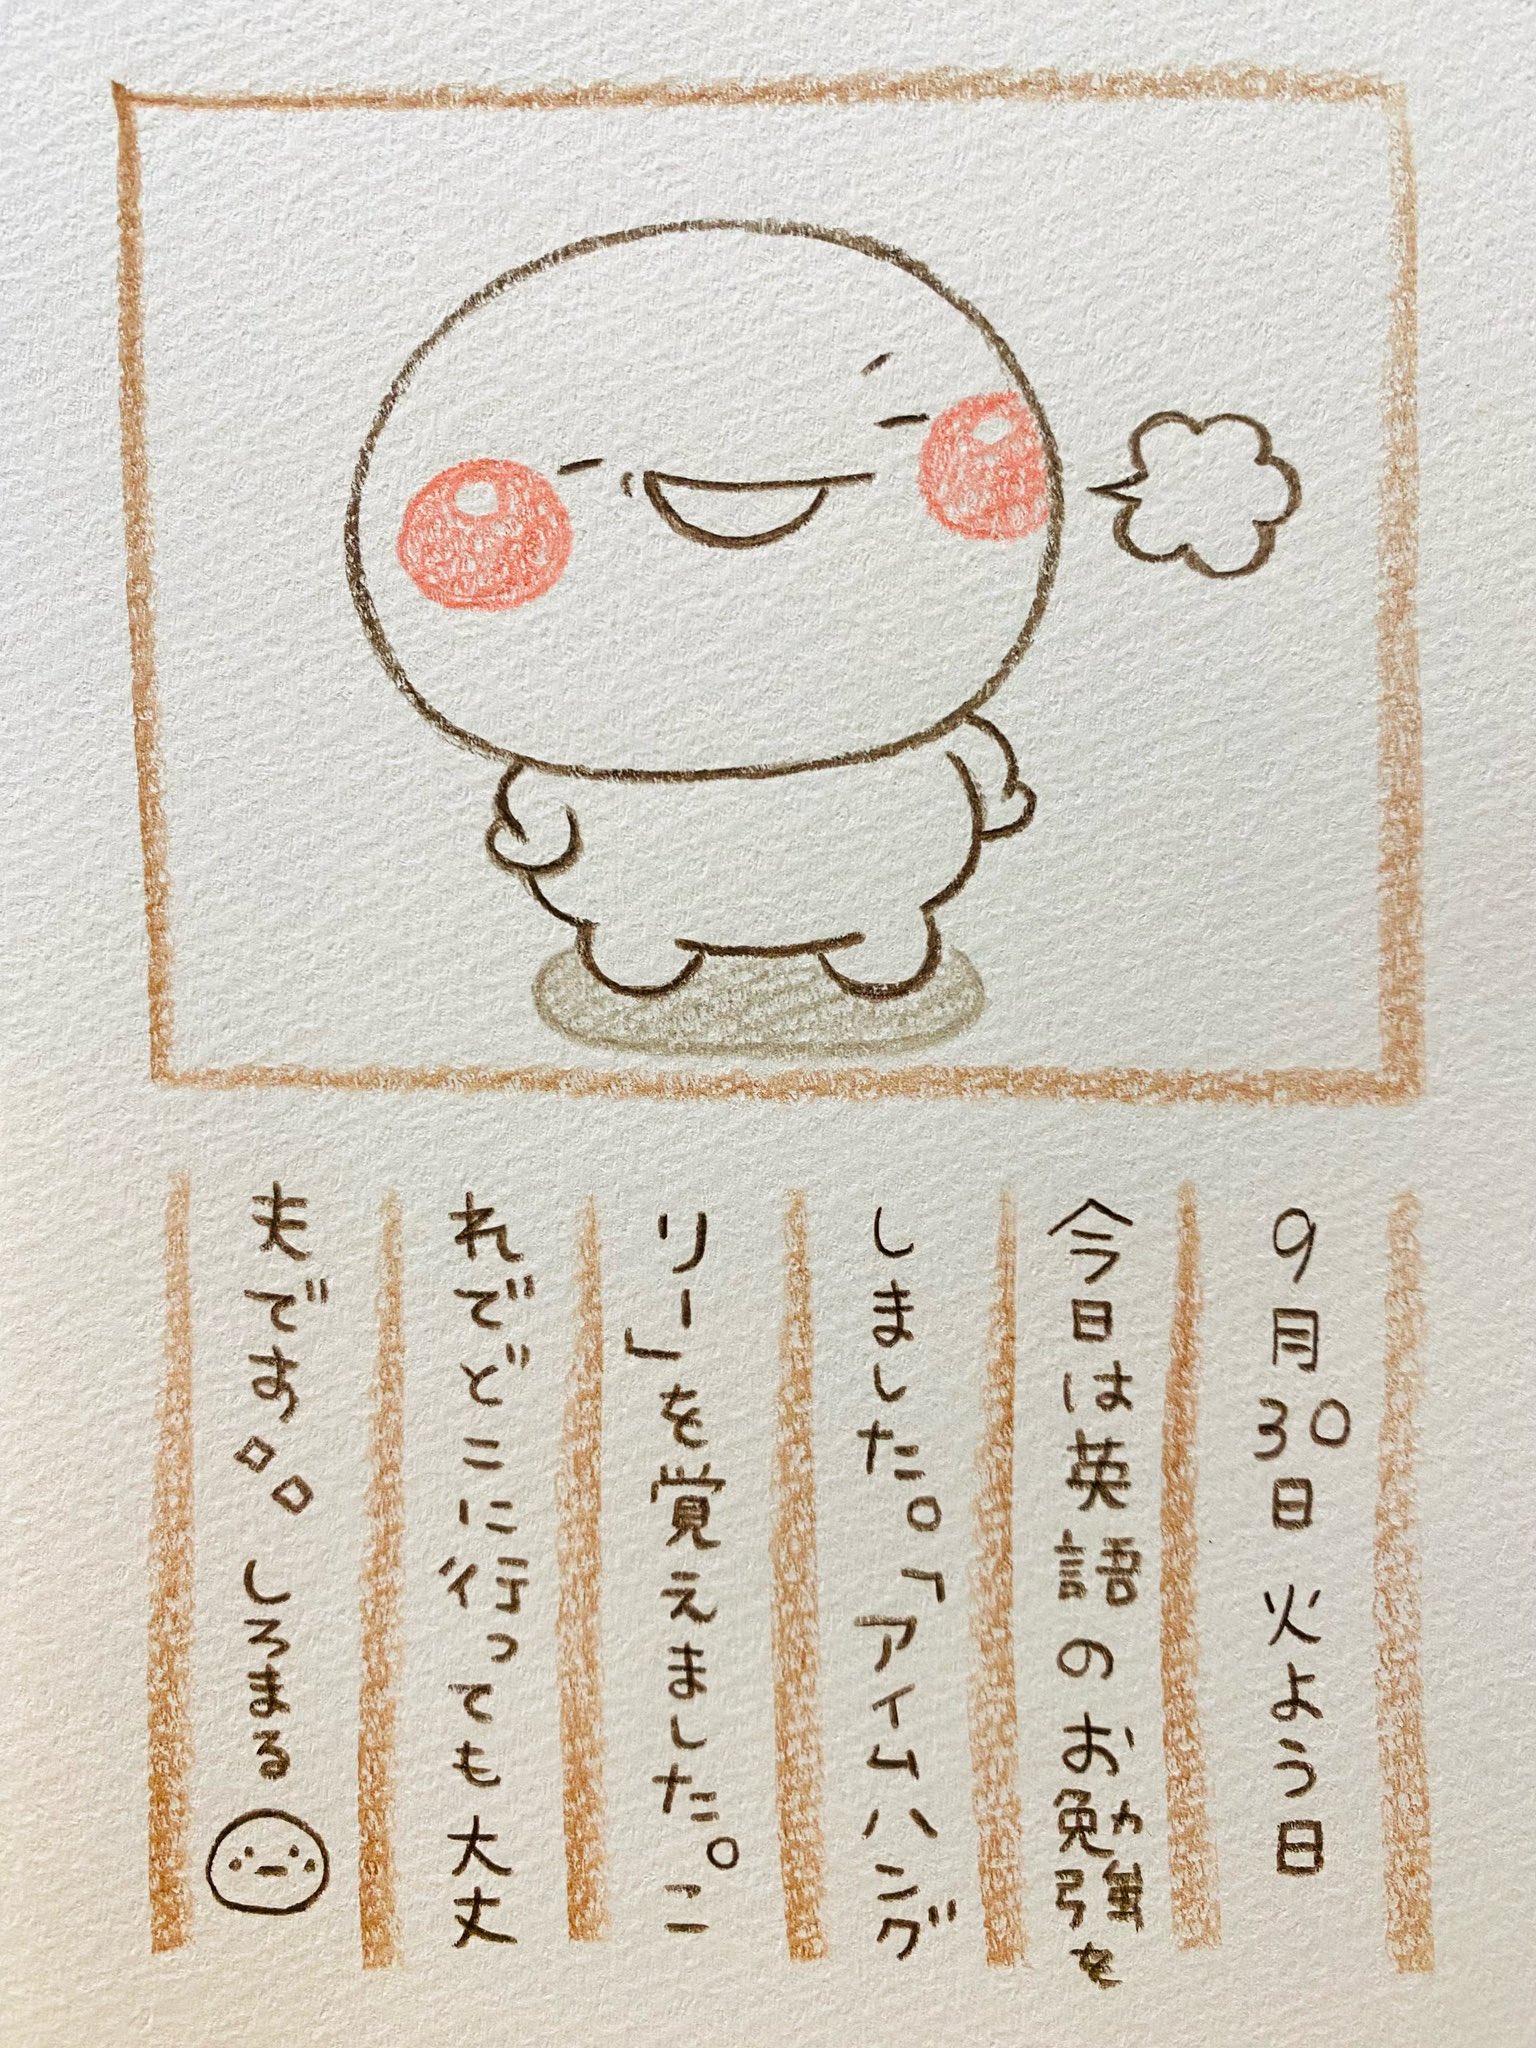 9月30日 火よう日
今日は英語のお勉強を
しました。「アイムハング
リー」を覚えました。こ
れでどこに行っても大丈
夫です。。しろまる